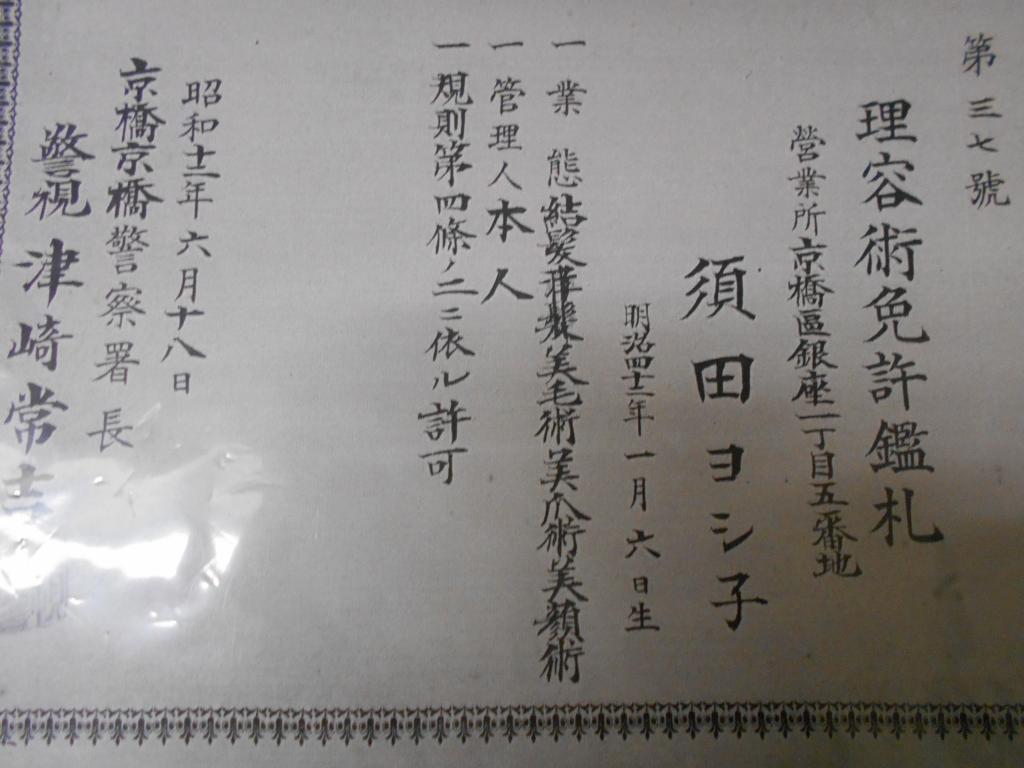 第三七號
理容術免許鑑札
營業所京橋區銀座一丁目五番地
須田ヨシ子
明治四十一年一月六日生
一業態結髪美髪美毛術美爪術美顔術
一管理人本人
一規則第四條ノ二ニ依ル許可
昭和十二年六月十八日
京橋京橋警察署長
警視津崎常吉